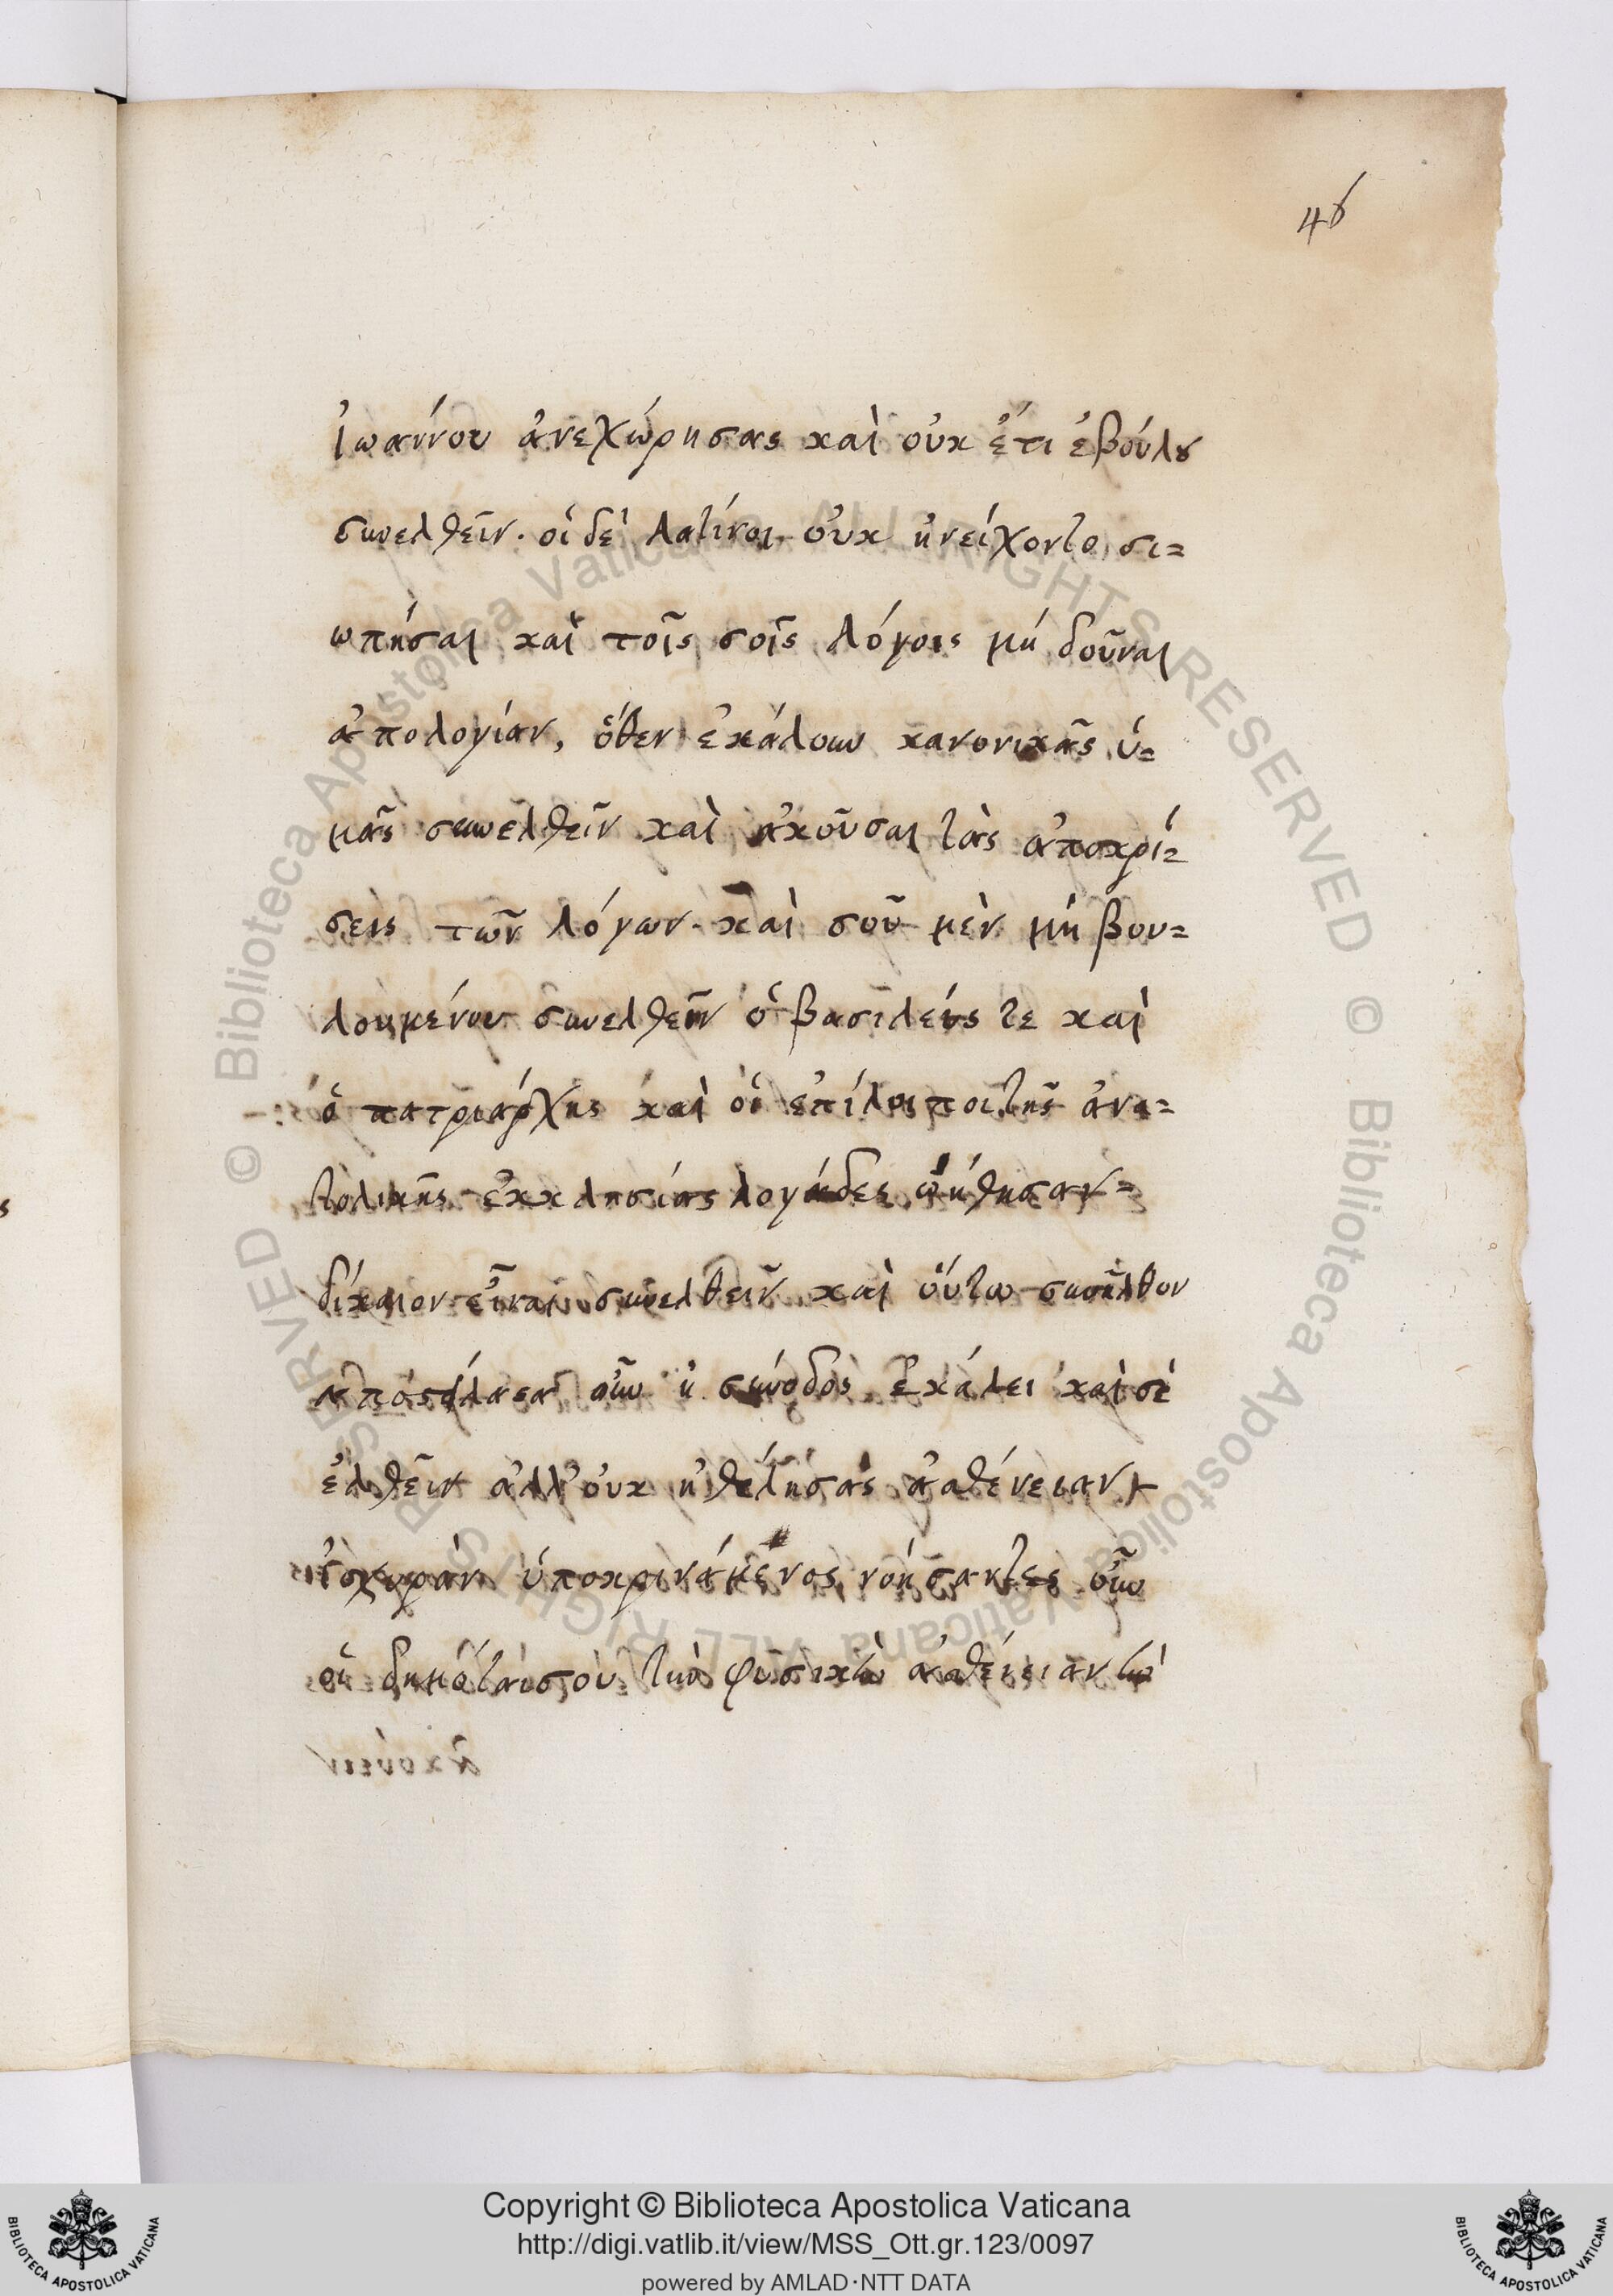 46
ἰωαννίου ἀνεχώρησας καὶ οὐκ ἔτι ἐβούλου
συνελθεῖν. οἱ δὲ λατίνοι οὐκ ἠνείχοντο σι=
ωπῆσαι καὶ τοῖς σοῖς λόγοις μὴ δοῦναι
ἀπολογίαν, ὅθεν ἐκάλουν κανονικᾶς ὑ=
μᾶς συνελθεῖν καὶ ἀκοῦσαι τὰς ἀποκρί=
σεις τῶν λόγων. καὶ σοῦ μὲν μὴ βου=
λουμένου συνελθεῖν ὁ βασιλεύς τε καὶ
ὁ πατριάρχης καὶ οἱ ἐπίλοιποι τῆς ἀνα=
τολικῆς ἐκκλησίας λογάδες ᾠήθησαν=
δίκαιον εἶναι συνελθεῖν καὶ οὕτω συνῆλθον
οὖν ἡ σύνοδος ἐκάλει καὶ σὲ
ἐλθεῖν ἀλλ' οὐκ ἠθέλησας ἀσθένειαν
ἰσχυρὰν ὑποκρινάμενος νοήσαντες οὖν
οἱ δημόται σου τὴν φυσικὴν ἀσθένειαν
Copyright © Biblioteca Apostolica Vaticana
http://digi.vatlib.it/view/MSS_Ott.gr.123/0097
powered by AMLAD·NTT DATA
BIBLIOTECA APOSTOLICA VATICANA
BIBLIOTECA APOSTOLICA VATICANA
© Biblioteca Apostolica Vaticana ALL RIGHTS RESERVED © Biblioteca Apostolica Vaticana ALL RIGHTS RESERVED